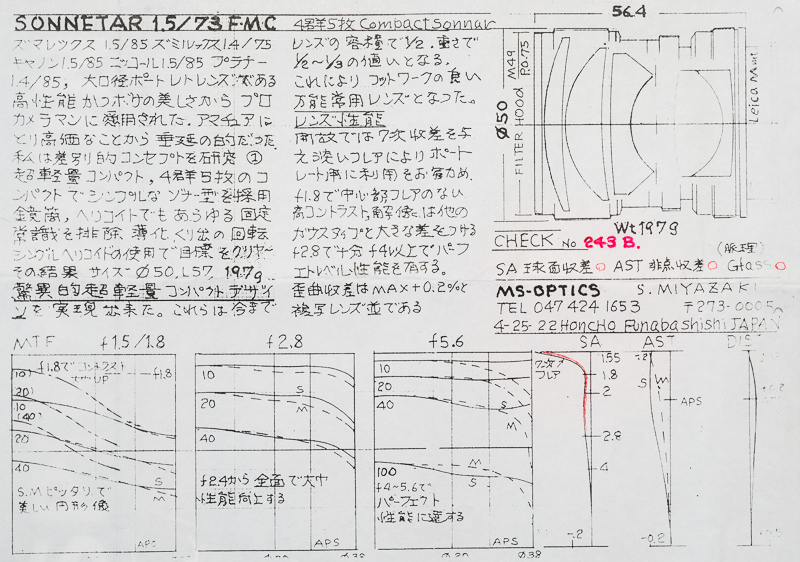 SONNETAR 1.5/73 F·M·C 4群5枚 Compact Sonnar
ズマレックス 1.5/85 ズミルックス 1.4/75
キャノン 1.5/85 ニッコール 1.5/85 プラナー
1.4/85, 大口径ポートレイトレンズである
高性能かつボケの美しさから プロ
カメラマンに愛用された。アマチュアに
とり高価なことから 垂涎の的だった
私は差別的コンセプトを研究 ①
超軽量コンパクト, 4群5枚のコ
ンパクトでシンプルな ゾナー型を採用
鏡筒, ヘリコイドでもあらゆる固定
常識を排除, 薄化, くり出の回転
シングルヘリコイドの使用で目標をクリヤー
その結果 サイズ Ø50, L57, 197g
驚異的超軽量コンパクト デザイ
ンを実現出来た。これらは今まで
レンズの 容積で 1/2. 重さで
1/2~1/3の過いとなる。
これにより フットワークの良い
万能常用レンズとなった。
レンズ性能
開放では7次収差を与
え淡いフレアによりポート
レート用に利用をお奨め,
f1.8で中心部フレアのない
高コントラスト, 解像, は他の
ガウスタイプと大きな差をつける
f2.8で十分 f4以上でパーフ
ェクトレベル性能を有する。
歪曲収差は MAX+0.2%と
複写レンズ並である
56.4
Ø50
FILTER HOOD M49
P.0.75
Leica Mount
Wt 197g
CHECK No 243 B.
(脈理)
SA 球面収差○ AST 非点収差○ Glass○
MS-OPTICS S. MIYAZAKI
TEL 047 424 1653 〒273-0005
4-25-22 Honcho Funabashishi JAPAN
MTF f1.5/1.8 f2.8 f5.6 SA AST DIST
f1.8でコントラスト
UP
f1.8
(10)
(20)
10
(40)
20
40
S
M
S.M ピッタリで
美しい円形像
APS
10
20
S
M
40
f2.4から全面で大巾
性能向上する
APS
Ø38
10
20
40
S
M
100
f4~5.6で
パーフェクト
性能に達する
APS
Ø38
7次
フレア
1.55
1.8
2
2.8
4
-.2
-.2
S
M
APS
-0.2